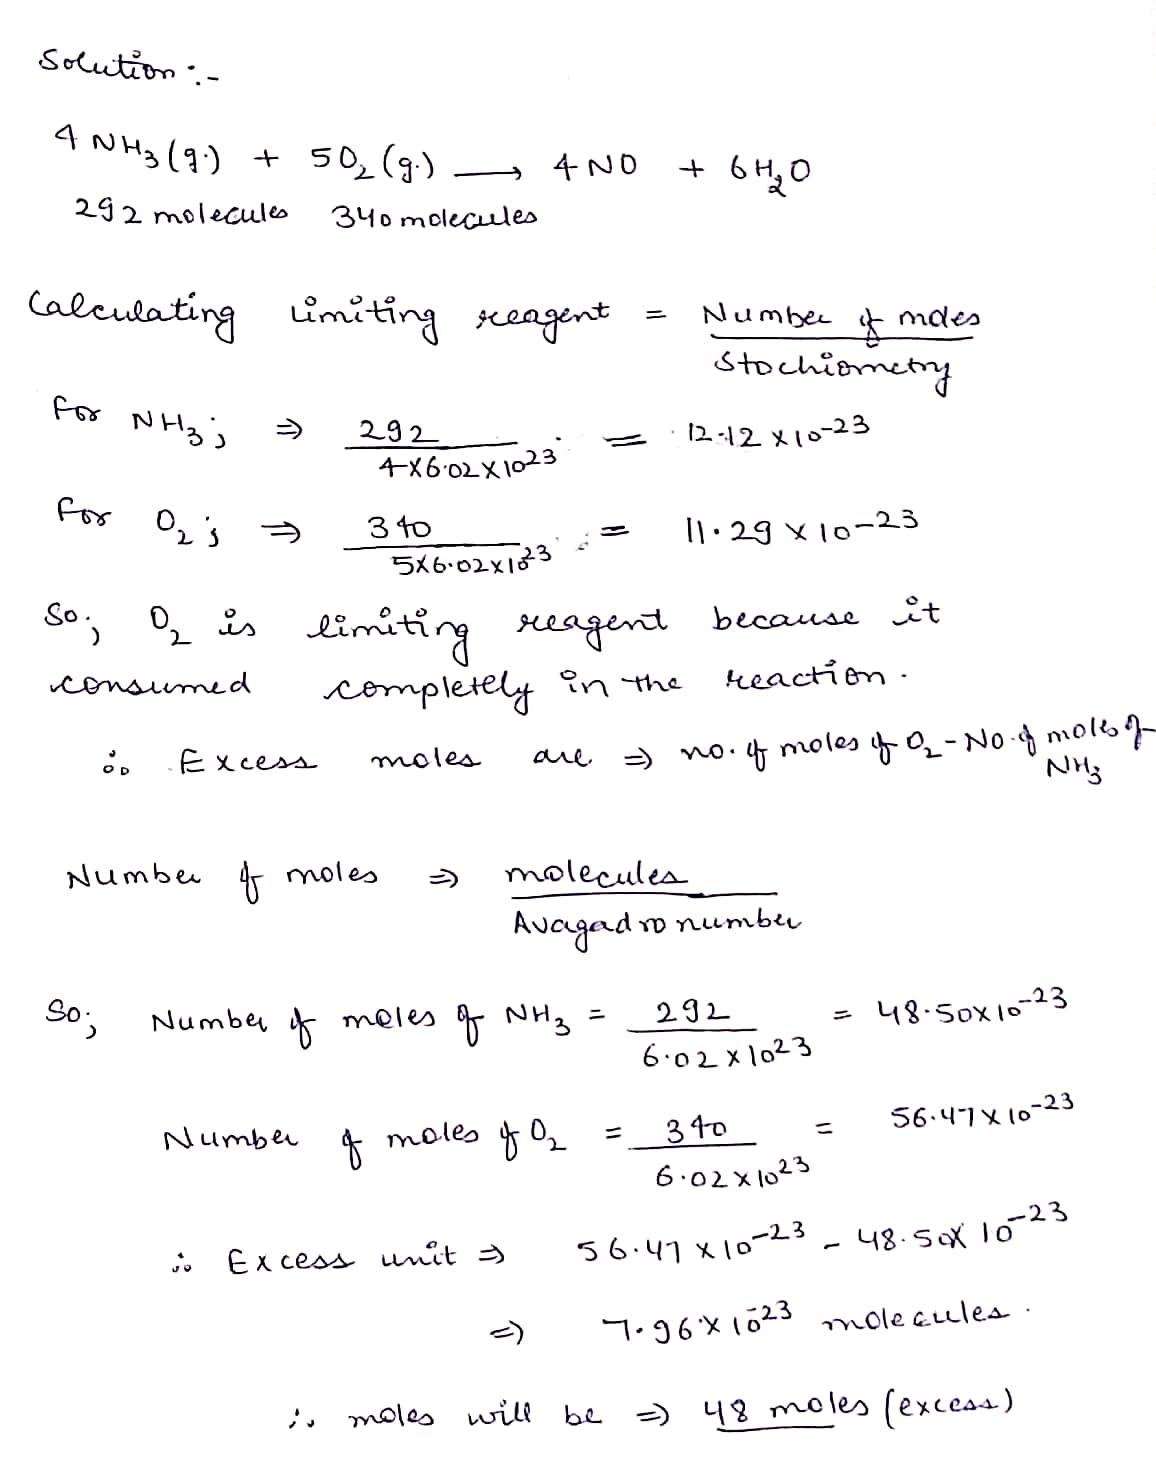 Solution :-
4 NH₃ (g.) + 5O₂ (g.) → 4 NO + 6 H₂O
292 molecules 340 molecules
Calculating limiting reagent = Number of moles / Stochiometry
For NH₃ ; ⇒ 292 / 4×6.02×10²³ = 12.12 × 10⁻²³
For O₂ ; ⇒ 340 / 5×6.02×10²³ = 11.29 × 10⁻²³
So; O₂ is limiting reagent because it
consumed completely in the reaction.
∴ Excess moles are ⇒ no. of moles of O₂ - No. of moles of
NH₃
Number of moles ⇒ molecules / Avagadro number
So; Number of moles of NH₃ = 292 / 6.02 × 10²³ = 48.50×10⁻²³
Number of moles of O₂ = 340 / 6.02 × 10²³ = 56.47 × 10⁻²³
∴ Excess unit ⇒ 56.47 × 10⁻²³ - 48.50× 10⁻²³
⇒ 7.96 × 10⁻²³ molecules.
∴ moles will be ⇒ 48 moles (excess)